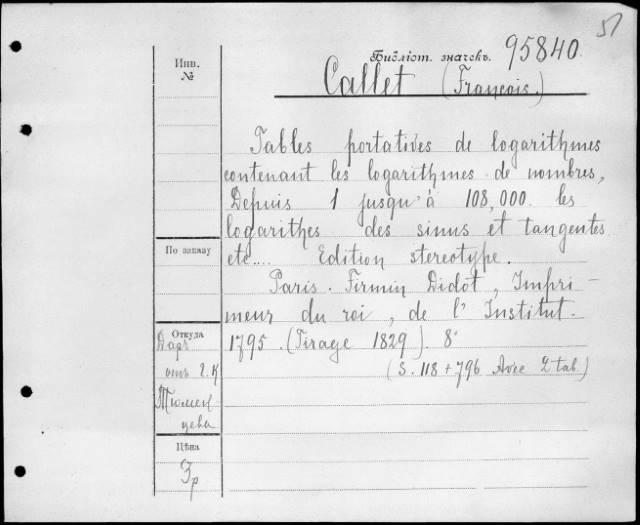 51
Библіот. значекъ. 95840.
Инв.
№
Callet (François.)
Tables portatives de logarithmes
contenant les logarithmes de nombres,
Depuis 1 jusqu'à 108,000. les
logarithes des sinus et tangentes
etc.... Edition stereotype.
Paris. Firmin Didot, Impri-
meur du roi, de l'Institut.
1795. (Tirage 1829). 8°
(S. 118 + 796 Avec 2 tab.)
По заказу
Откуда
Даръ
отъ Г. К
Тюмен
цева
Цѣна
3р